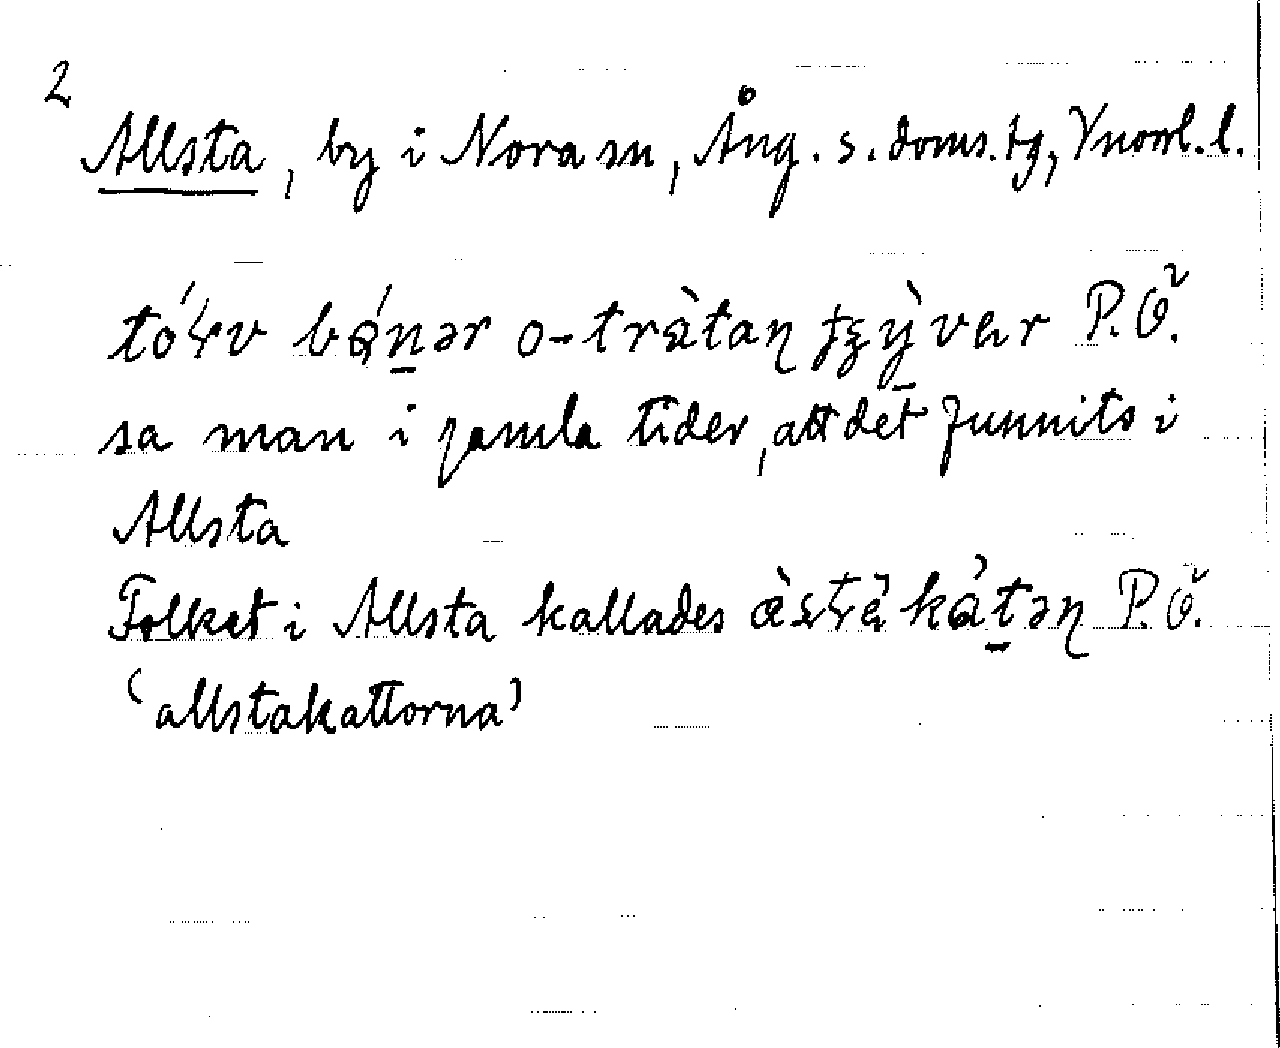 2
Allsta, by i Nora sn, Ång. s. doms. tg, Vnorrl. l.
bǻn̠ər o-tràtaɳ P. Ö.
sa man i gamla tider, att det funnits i
Allsta
Folket i Allsta kallades kát̠əɳ P. Ö.
(allstakattorna)